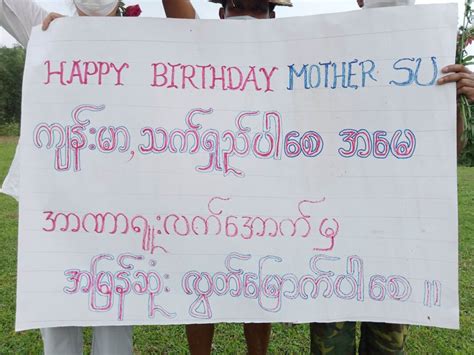 HAPPY BIRTHDAY MOTHER SU
ကျန်းမာ, သက်ရှည်ပါစေ အမေ
အာဏာရူးလက်အောက်မှ
အမြန်ဆုံး လွတ်မြောက်ပါစေ ။